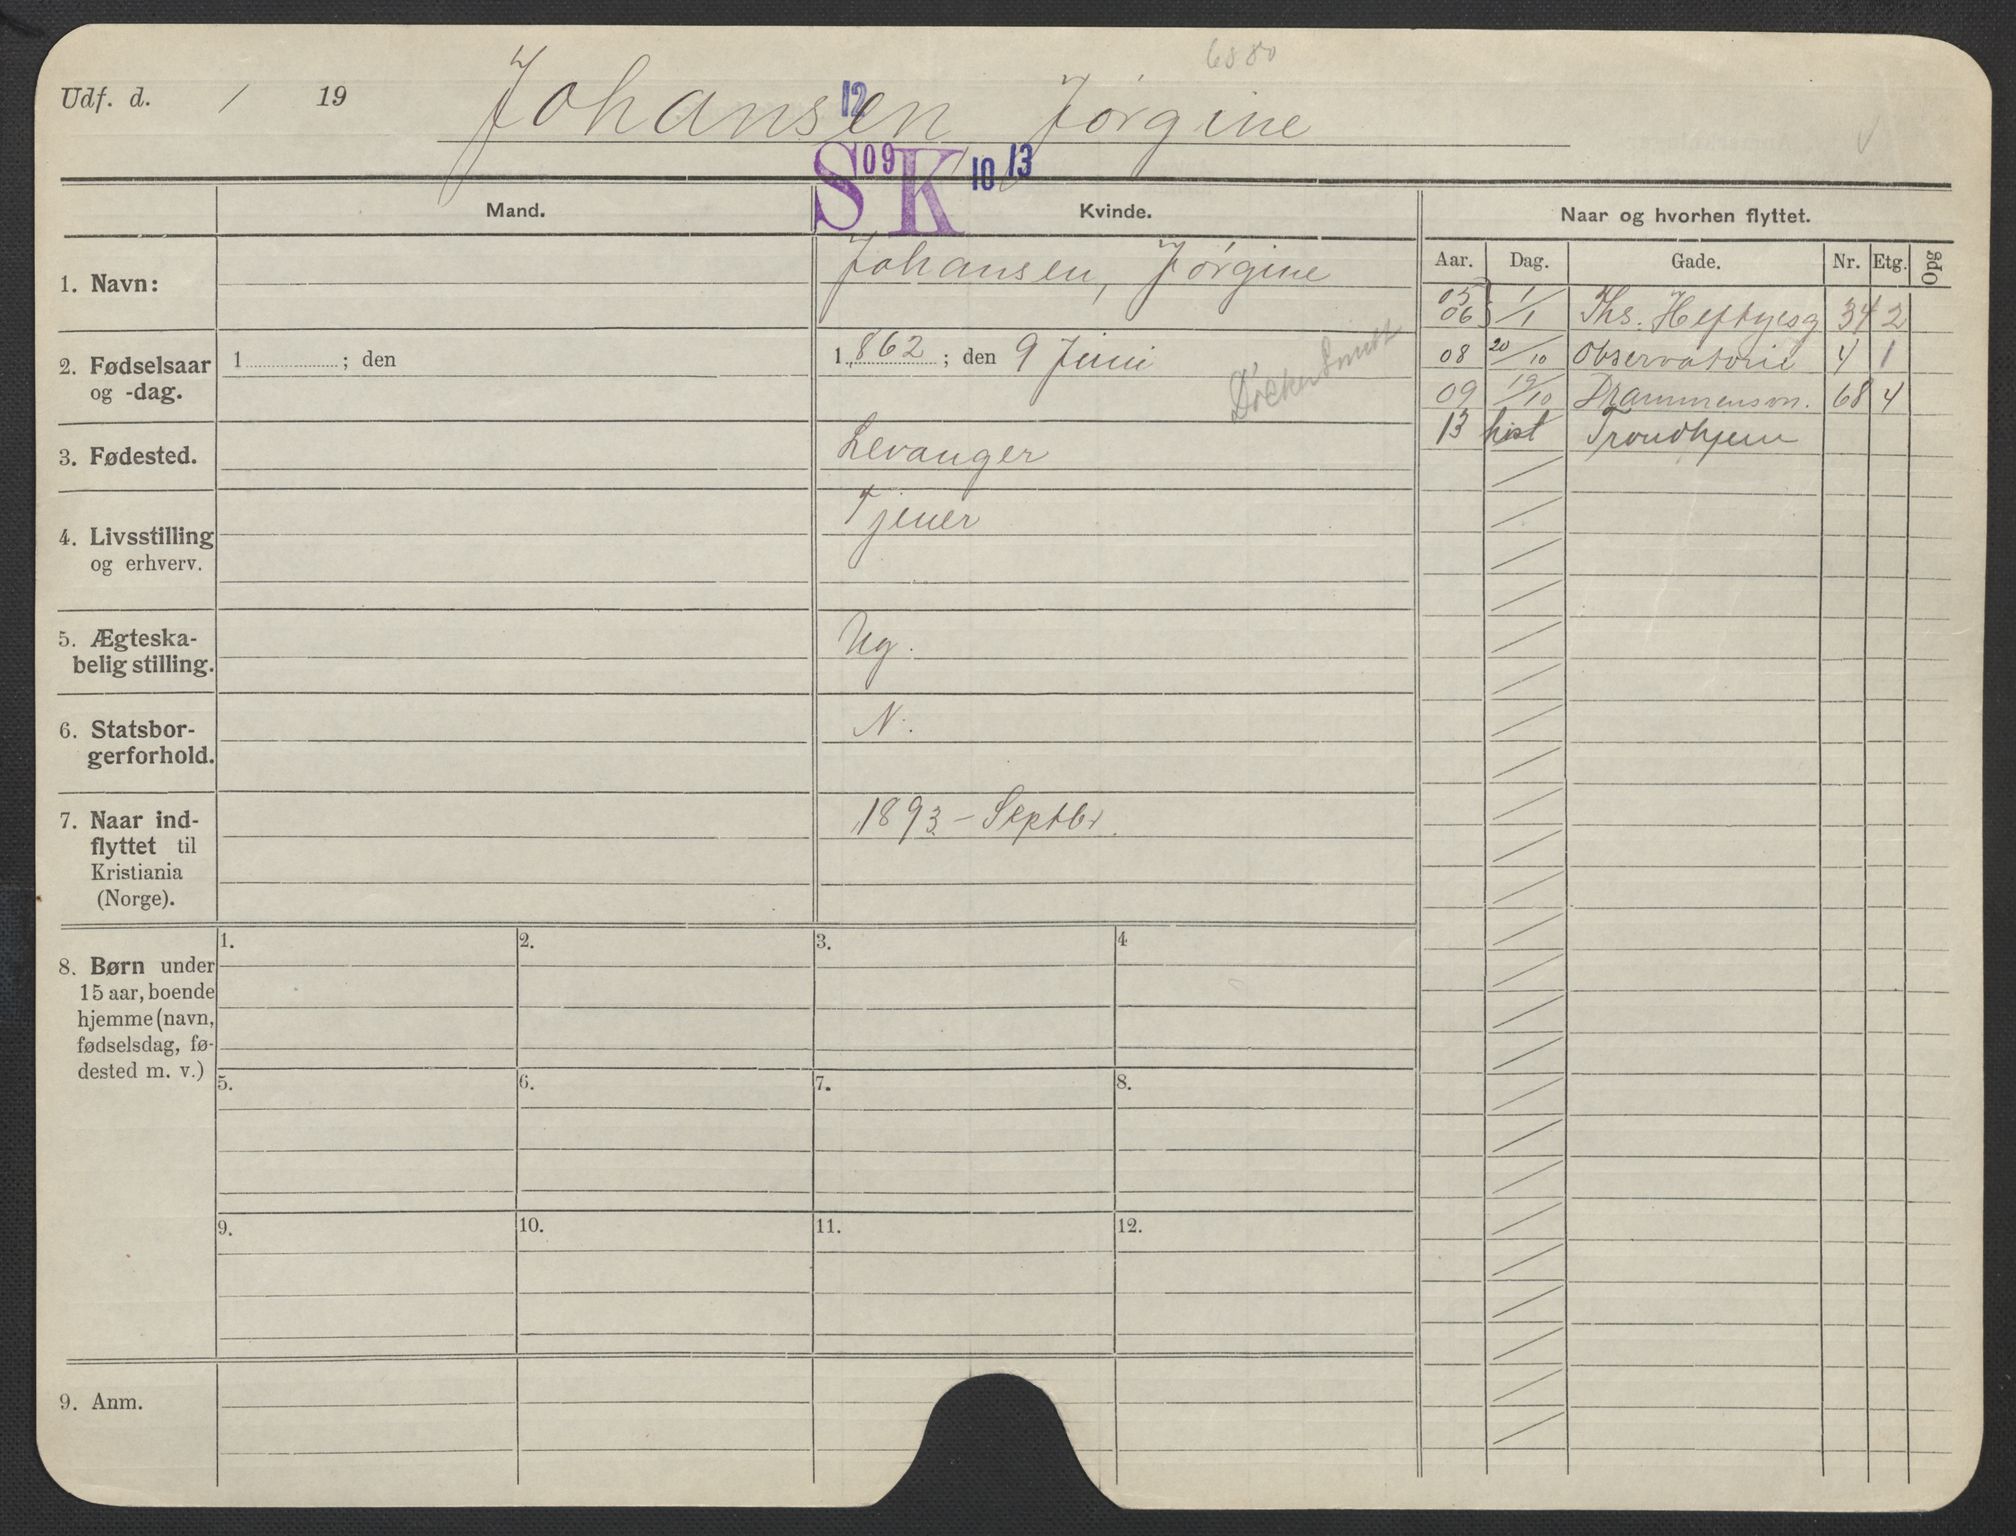 6880
Udf. d. / 19 Johansen Jørgine
12
S 09 K 10 13
Mand. Kvinde. Naar og hvorhen flyttet.
Aar. Dag. Gade. Nr. Etg. Opg
1. Navn: Johansen, Jørgine
2. Fødselsaar og -dag. 1 ; den
1 862 ; den 9 Juni
3. Fødested. Levanger
4. Livsstilling og erhverv. Tjener
5. Ægteska-
belig stilling. Ug.
6. Statsbor-
gerforhold. N.
7. Naar ind-
flyttet til
Kristiania
(Norge).
1893 - Septbr.
05
06 1/1 Ths. Heftyesg 34 2
08 20/10 Observatorie 4 1
09 19/10 Drammensvn. 68 4
13 høst Trondhjem
8. Børn under
15 aar, boende
hjemme (navn,
fødselsdag, fø-
dested m. v.)
1. 2. 3. 4
5. 6. 7. 8.
9. 10. 11. 12.
9. Anm.